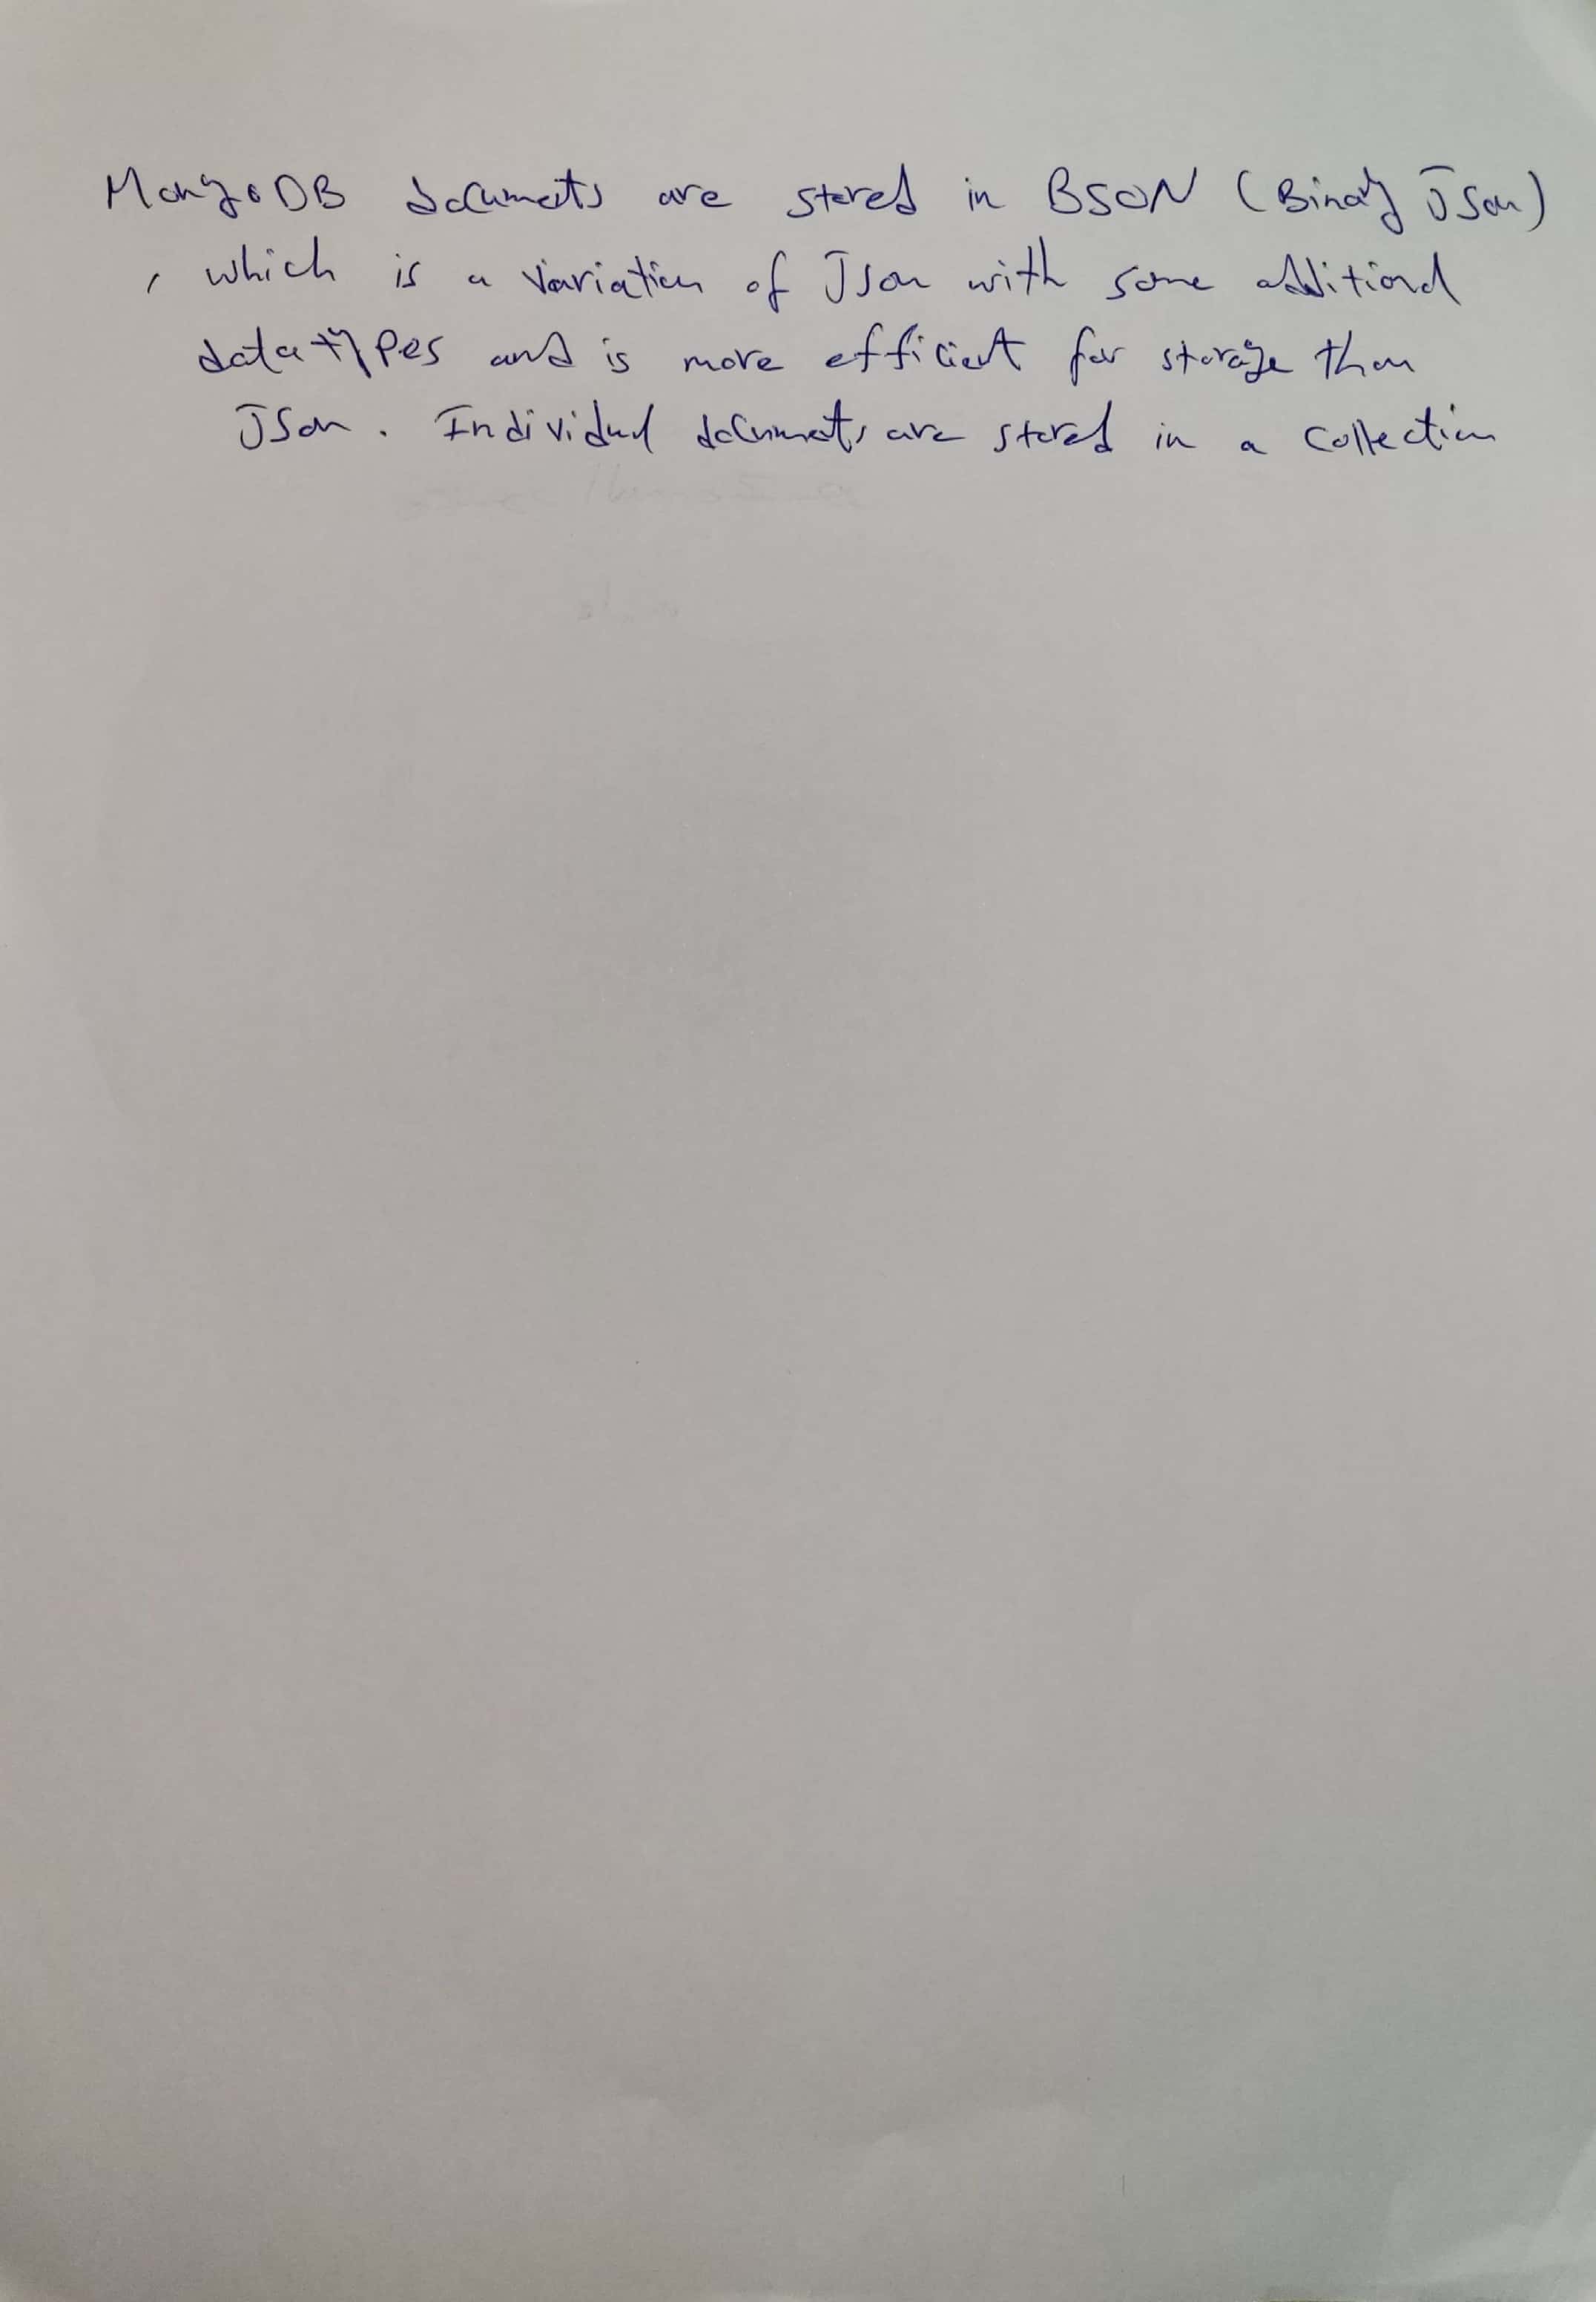 MongoDB documents are stored in BSON (Binary Json)
, which is a variation of Json with some additional
data types and is more efficient for storage than
Json. Individual documents are stored in a collection